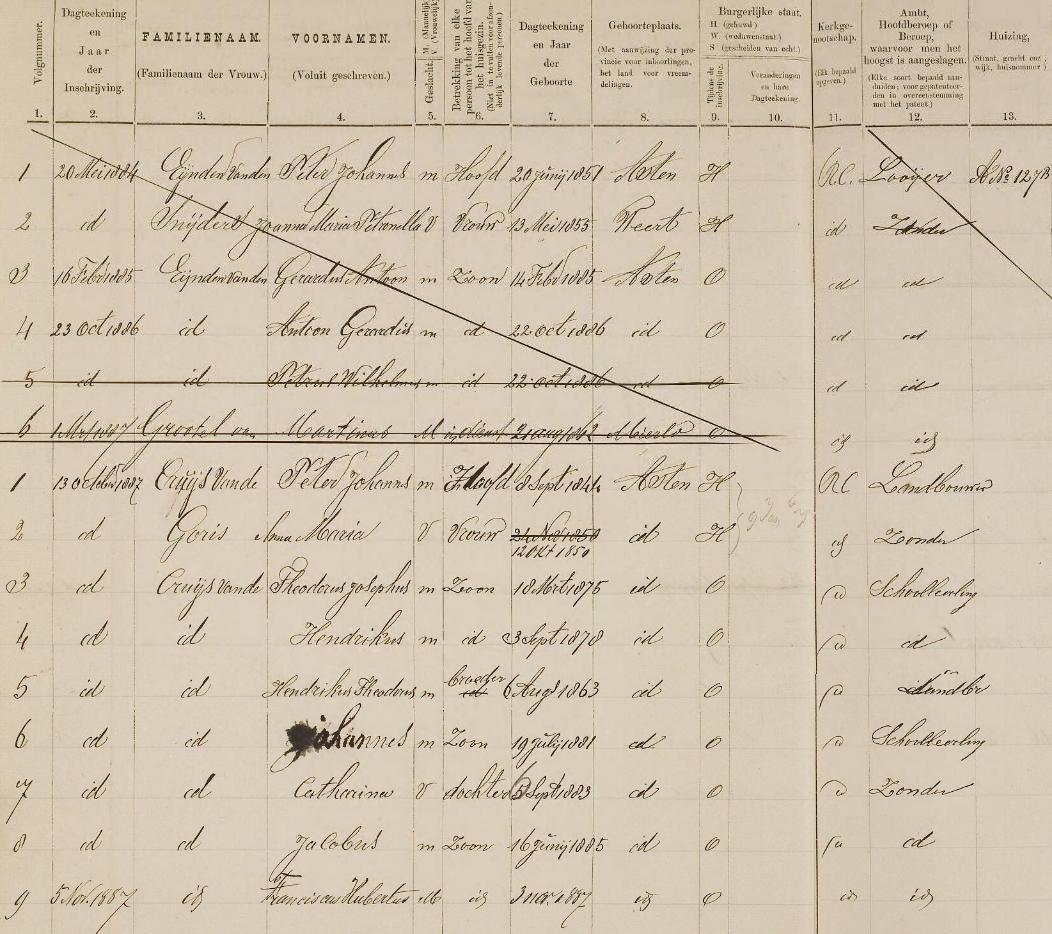 Volgnummer. Dagteekening en Jaar der Inschrijving. FAMILIENAAM. (Familienaam der Vrouw.) VOORNAMEN. (Voluit geschreven.) Geslacht. M. (Mannelijk) V. (Vrouwelijk) Betrekking van elke persoon tot het hoofd van het huisgezin. Dagteekening en Jaar der Geboorte Geboorteplaats. (Met aanwijzing der provincie voor inboorlingen, het land voor vreemdelingen. Burgerlijke staat. H. (gehuwd) W. (weduwenstaat) S (gescheiden van echt.) Tijdens de inschrijving. Veranderingen en hare Dagteekening. Kerkgenootschap. (Elk bepaald opgeven.) Ambt, Hoofdberoep of Beroep, waarvoor men het hoogst is aangeslagen. (Elke soort bepaald aanduiden; voor gepatenteerden in overeenstemming met het patent.) Huizing, (Straat, gracht enz., wijk, huisnommer)
1. 2. 3. 4. 5. 6. 7. 8. 9. 10. 11. 12. 13.
1 20 Mei 1884 Eijnden Vanden Peter Johannes m Hoofd 20 Junij 1851 Asten H R.C. Looijer A No 127B
2 id Snijders Joanna Maria Petronella V Vrouw 13 Mei 1855 Weert H id Zonder
3 16 Feb 1885 Eijnden Vanden Gerardus Antoon m Zoon 14 Feb 1885 Asten O id id
4 23 Oct 1886 id Antoon Gerardus m id 22 oct 1886 id O id id
5 id id Petrus Wilhelmus m id 22 oct 1886 id O id id
6 1 Mrt 1887 Grootel van Martinus M dienst 21 aug 1862 Mierlo O id id
1 13 October 1887 Cruijs Vande Peter Johannes m Hoofd 8 Sept 1844 Asten H R.C Landbouwer
2 id Goris Anna Maria V Vrouw 24 Nov 1850 id H id Zonder
12 Okt 1850
3 id Cruijs Vande Theodorus Josephus m Zoon 18 Mrt 1875 id O id Schoolleerling
4 id id Hendrikus m id 3 Sept 1878 id O id id
5 id id Hendrikus Theodorus m broeder id 6 Aug 1863 id O id
6 id id Johannes m Zoon 19 July 1881 id O id Schoolleerling
7 id id Catharina V dochter 5 Sept 1883 id O id Zonder
8 id id Jacobus m Zoon 16 Junij 1885 id O id id
9 5 Nov. 1887 id Franciscus Hubertus M id 3 nov. 1887 id O id id